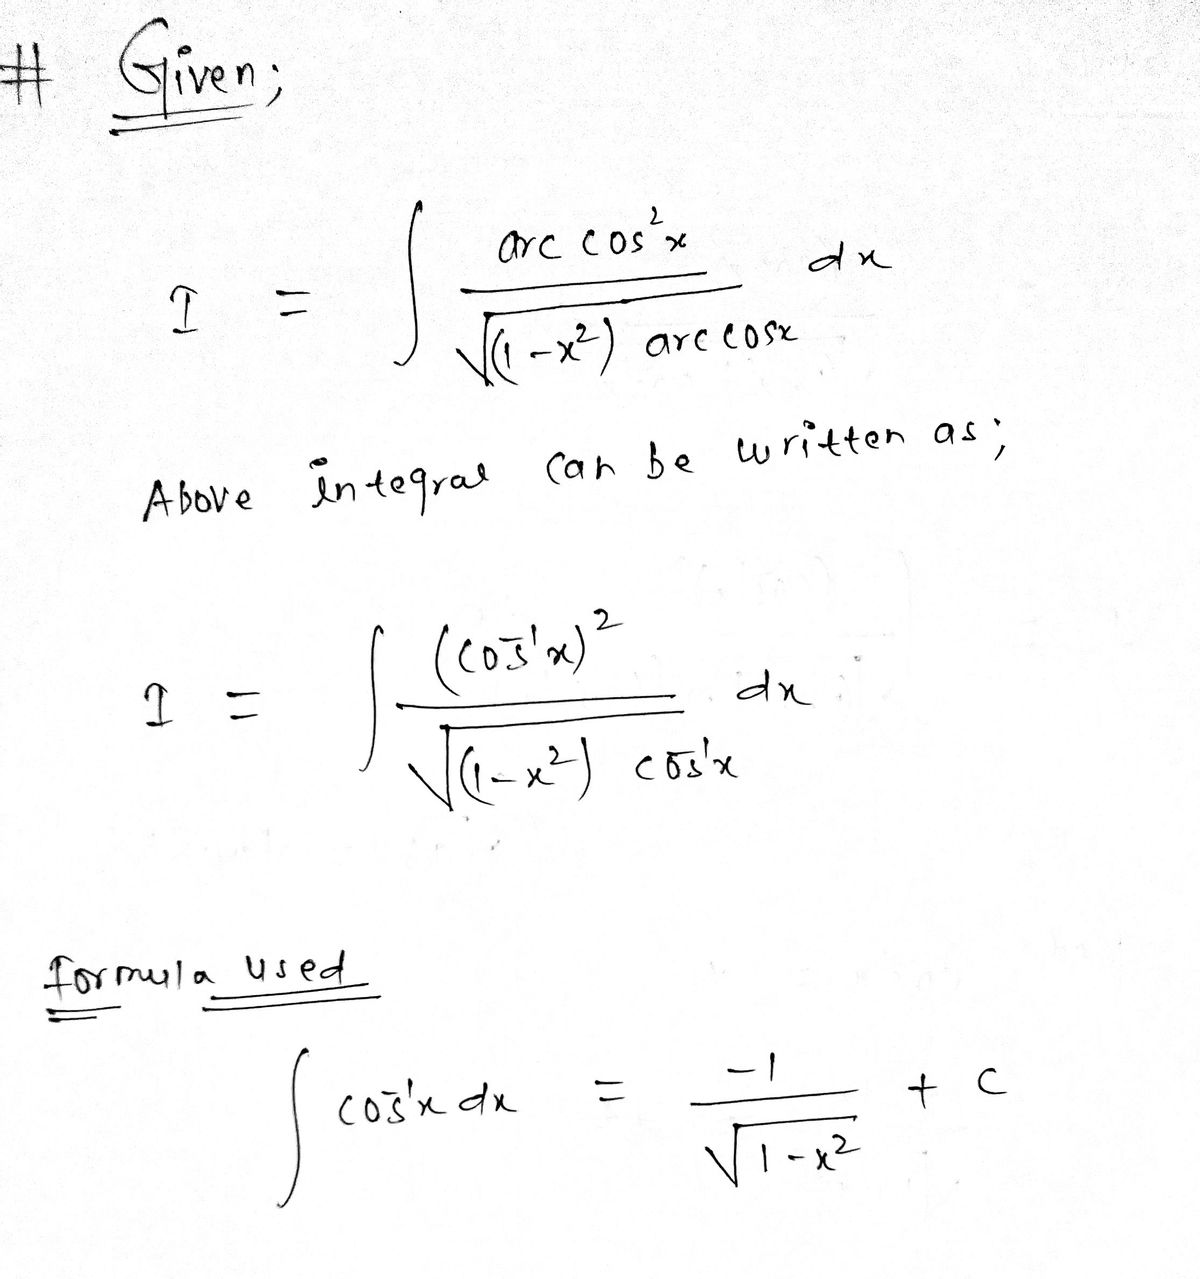 # Given;
I = ∫ arc cos²x / √(1-x²) arc cosx dx
Above integral can be written as;
I = ∫ (cos⁻¹x)² / √(1-x²) cos⁻¹x dx
formula used
∫ cos⁻¹x dx = -1 / √1-x² + c